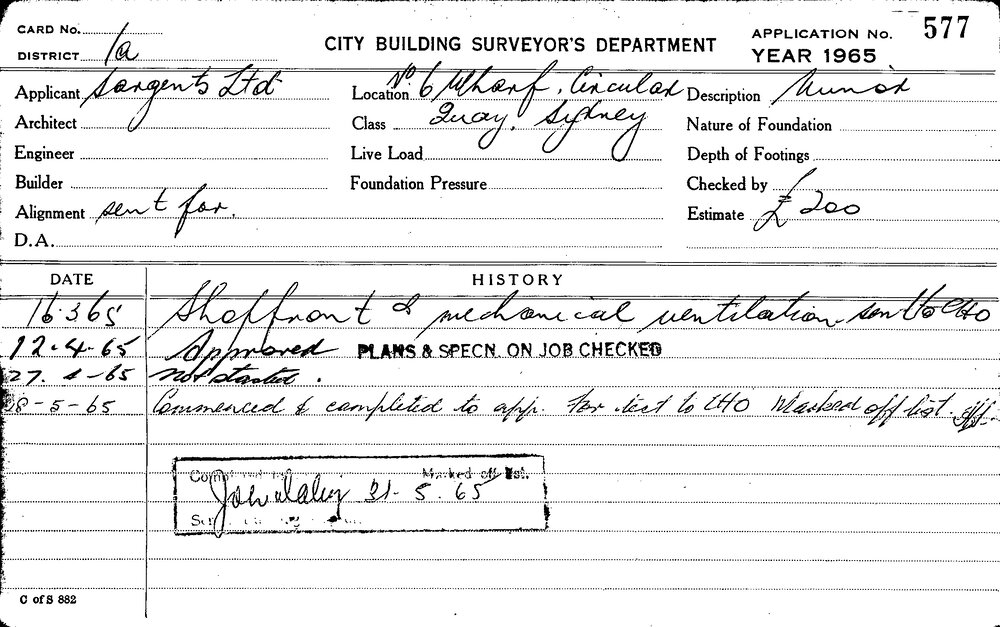 CARD No.
DISTRICT 1a
CITY BUILDING SURVEYOR'S DEPARTMENT
APPLICATION No. 577
YEAR 1965
Applicant Sargents Ltd
Location No. 6 Wharf, Circular
Quay, Sydney
Description Minor
Architect
Class
Nature of Foundation
Engineer
Live Load
Depth of Footings
Builder
Foundation Pressure
Checked by
Alignment sent for.
Estimate £200
D.A.
DATE HISTORY
16.3.65 Shopfront & mechanical ventilation sent to CHO
12.4.65 Approved PLANS & SPECN. ON JOB CHECKED
27.4-65 Not started.
8-5-65 Commenced & completed to app. For test to CHO Marked off list.
Marked off list.
31.5.65
C of S 882